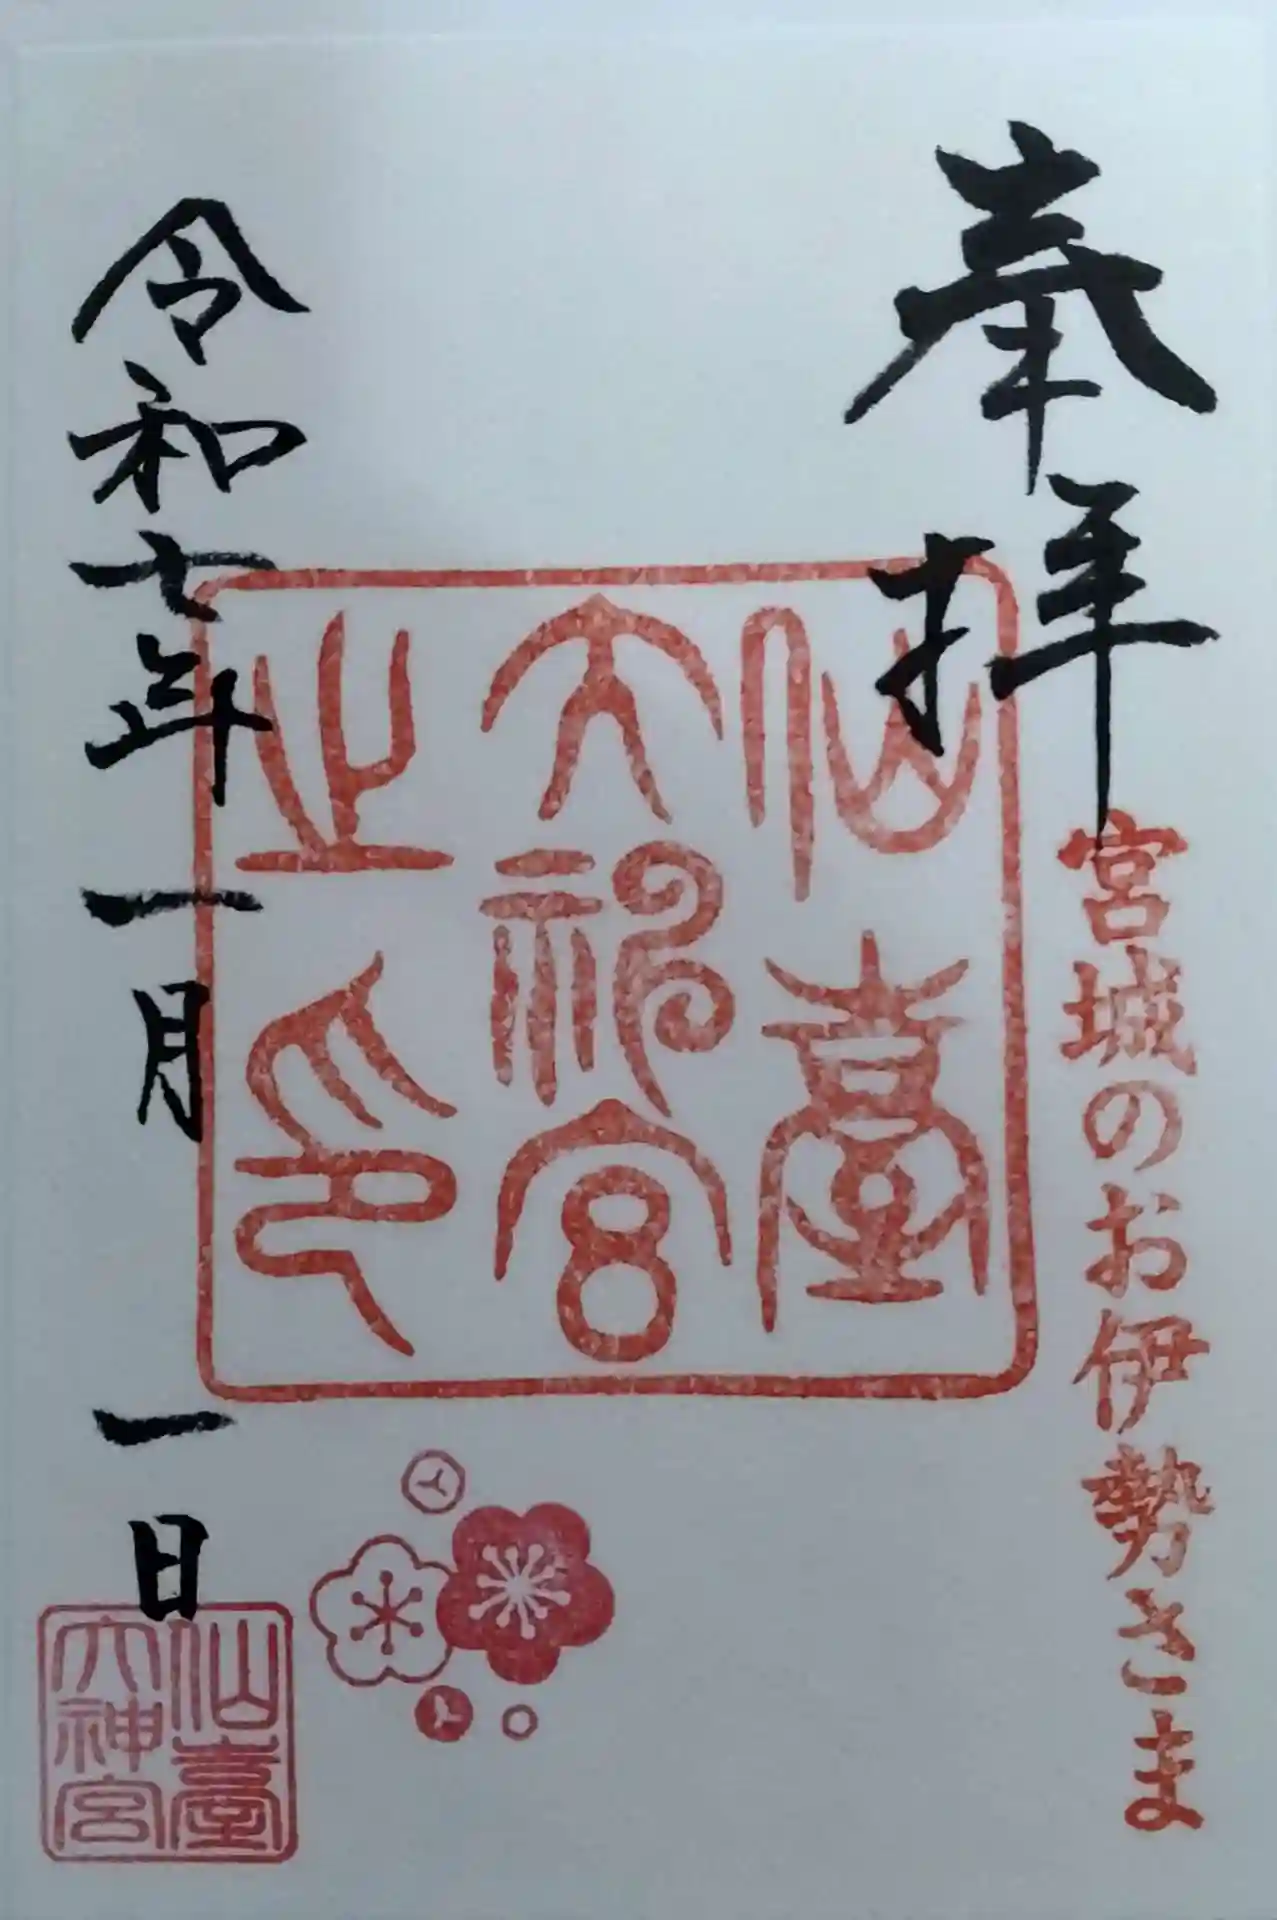 奉拝
宮城のお伊勢さま
仙臺
大神宮
之印
令和七年一月一日
仙臺
大神宮